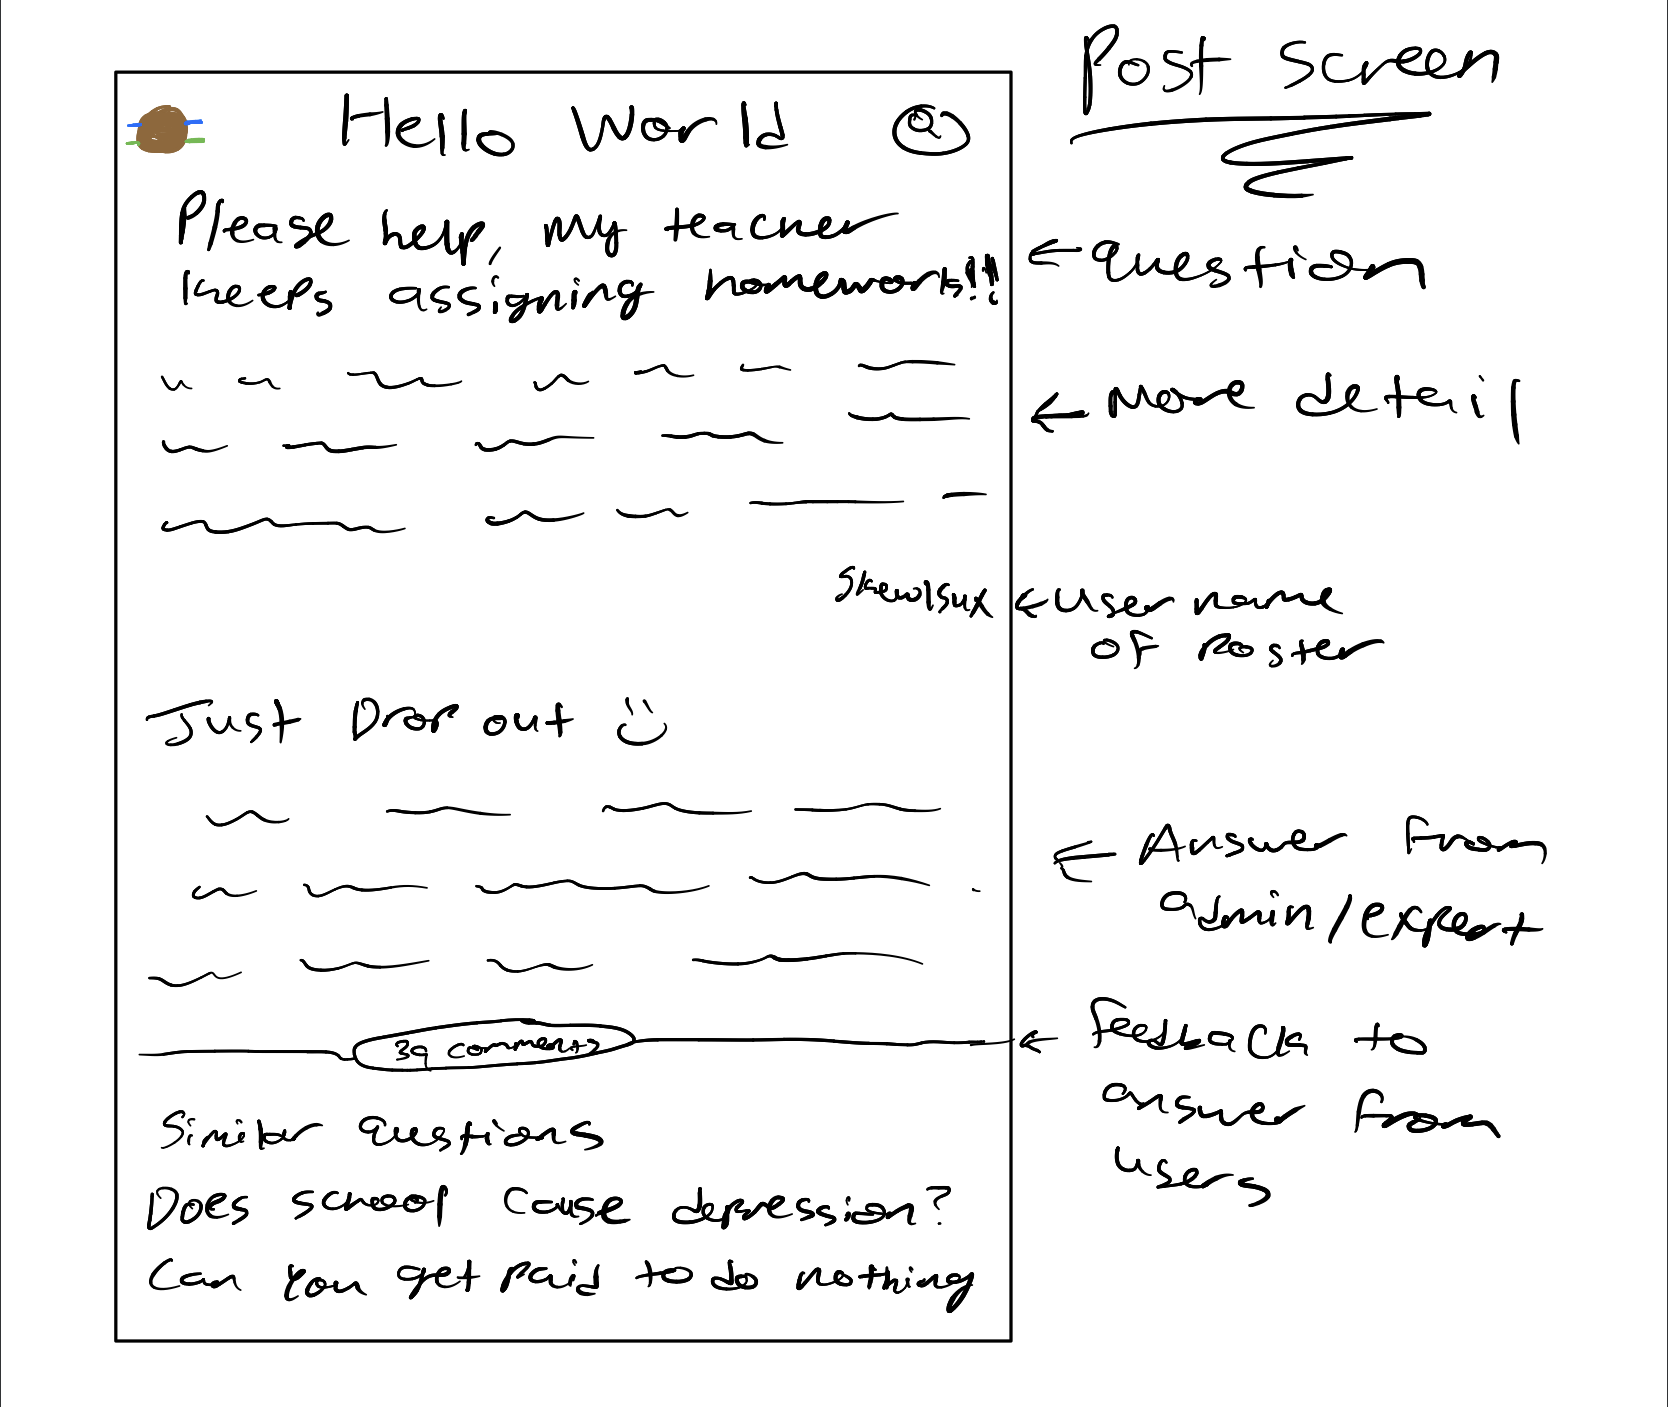 Post Screen
Hello World
Please help, my teacher
keeps assigning homework!!!
← question
← More detail
Skewlsux
← username
of poster
Just Drop out
← Answer from
admin/expert
39 comments
← feedback to
answer from
users
Similar questions
Does school cause depression?
Can you get paid to do nothing